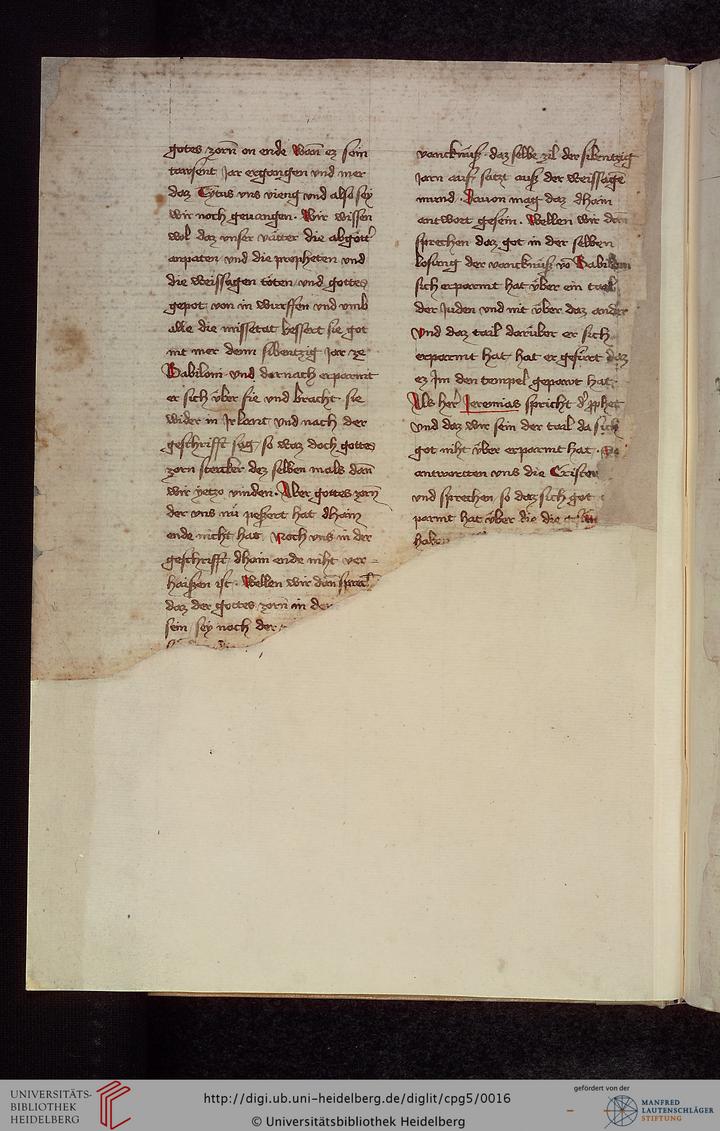 gotes zorn on ende Wan ez sein
tawsent Jar ergangen vnd mer
daz Tytus vns vieng vnd also sey
wir noch geuangen. Wir wissen
wol daz vnser vätter die abgött
anpaten vnd die propheten vnd
die weissagen töten vnd gottes
gepot von in wurffen vnd vmb
alle die missetat bessert sie got
nit mer denn sibentzig Jar ze
Babiloni vnd dernach erparmt
er sich vber sie vnd bracht sie
wider in Jr lant vnd nach der
geschrifft sag so waz doch gottes
zorn stercker dez selben mals dan
wir yetzo vinden. Aber gottes zorn
der vns nu peßert hat dhain
ende nicht hat Noch vns in der
geschrifft dhain ende niht ver=
haißen ist. Wellen wir dan sprech
daz der gottes zorn in der
sein sey noch der
vancknuß. daz selbe zil der sibentzig
Jarn auff satzt auß der weissage
mund. Dauon mag daz dhain
antwort gesein. Wellen wir dan
sprechen daz got in der selben
losung der vancknuß vo Babilon
sich erparmt hat vber ein tail
der Juden vnd nit vber daz ander
Vnd daz tail darüber er sich
erparmt hat hat er gefürt daz
ez Jm den tempel gepawt hat
Als her Jeremias spricht d' pphet
vnd daz wir sein der tail da sich
got niht vber erparmt hat.
antwortten vns die Cristen
vnd sprechen so daz sich got
parmt hat vber die die
haben
UNIVERSITÄTS-
BIBLIOTHEK
HEIDELBERG
http://digi.ub.uni-heidelberg.de/diglit/cpg5/0016
© Universitätsbibliothek Heidelberg
gefördert von der
MANFRED
LAUTENSCHLÄGER
STIFTUNG